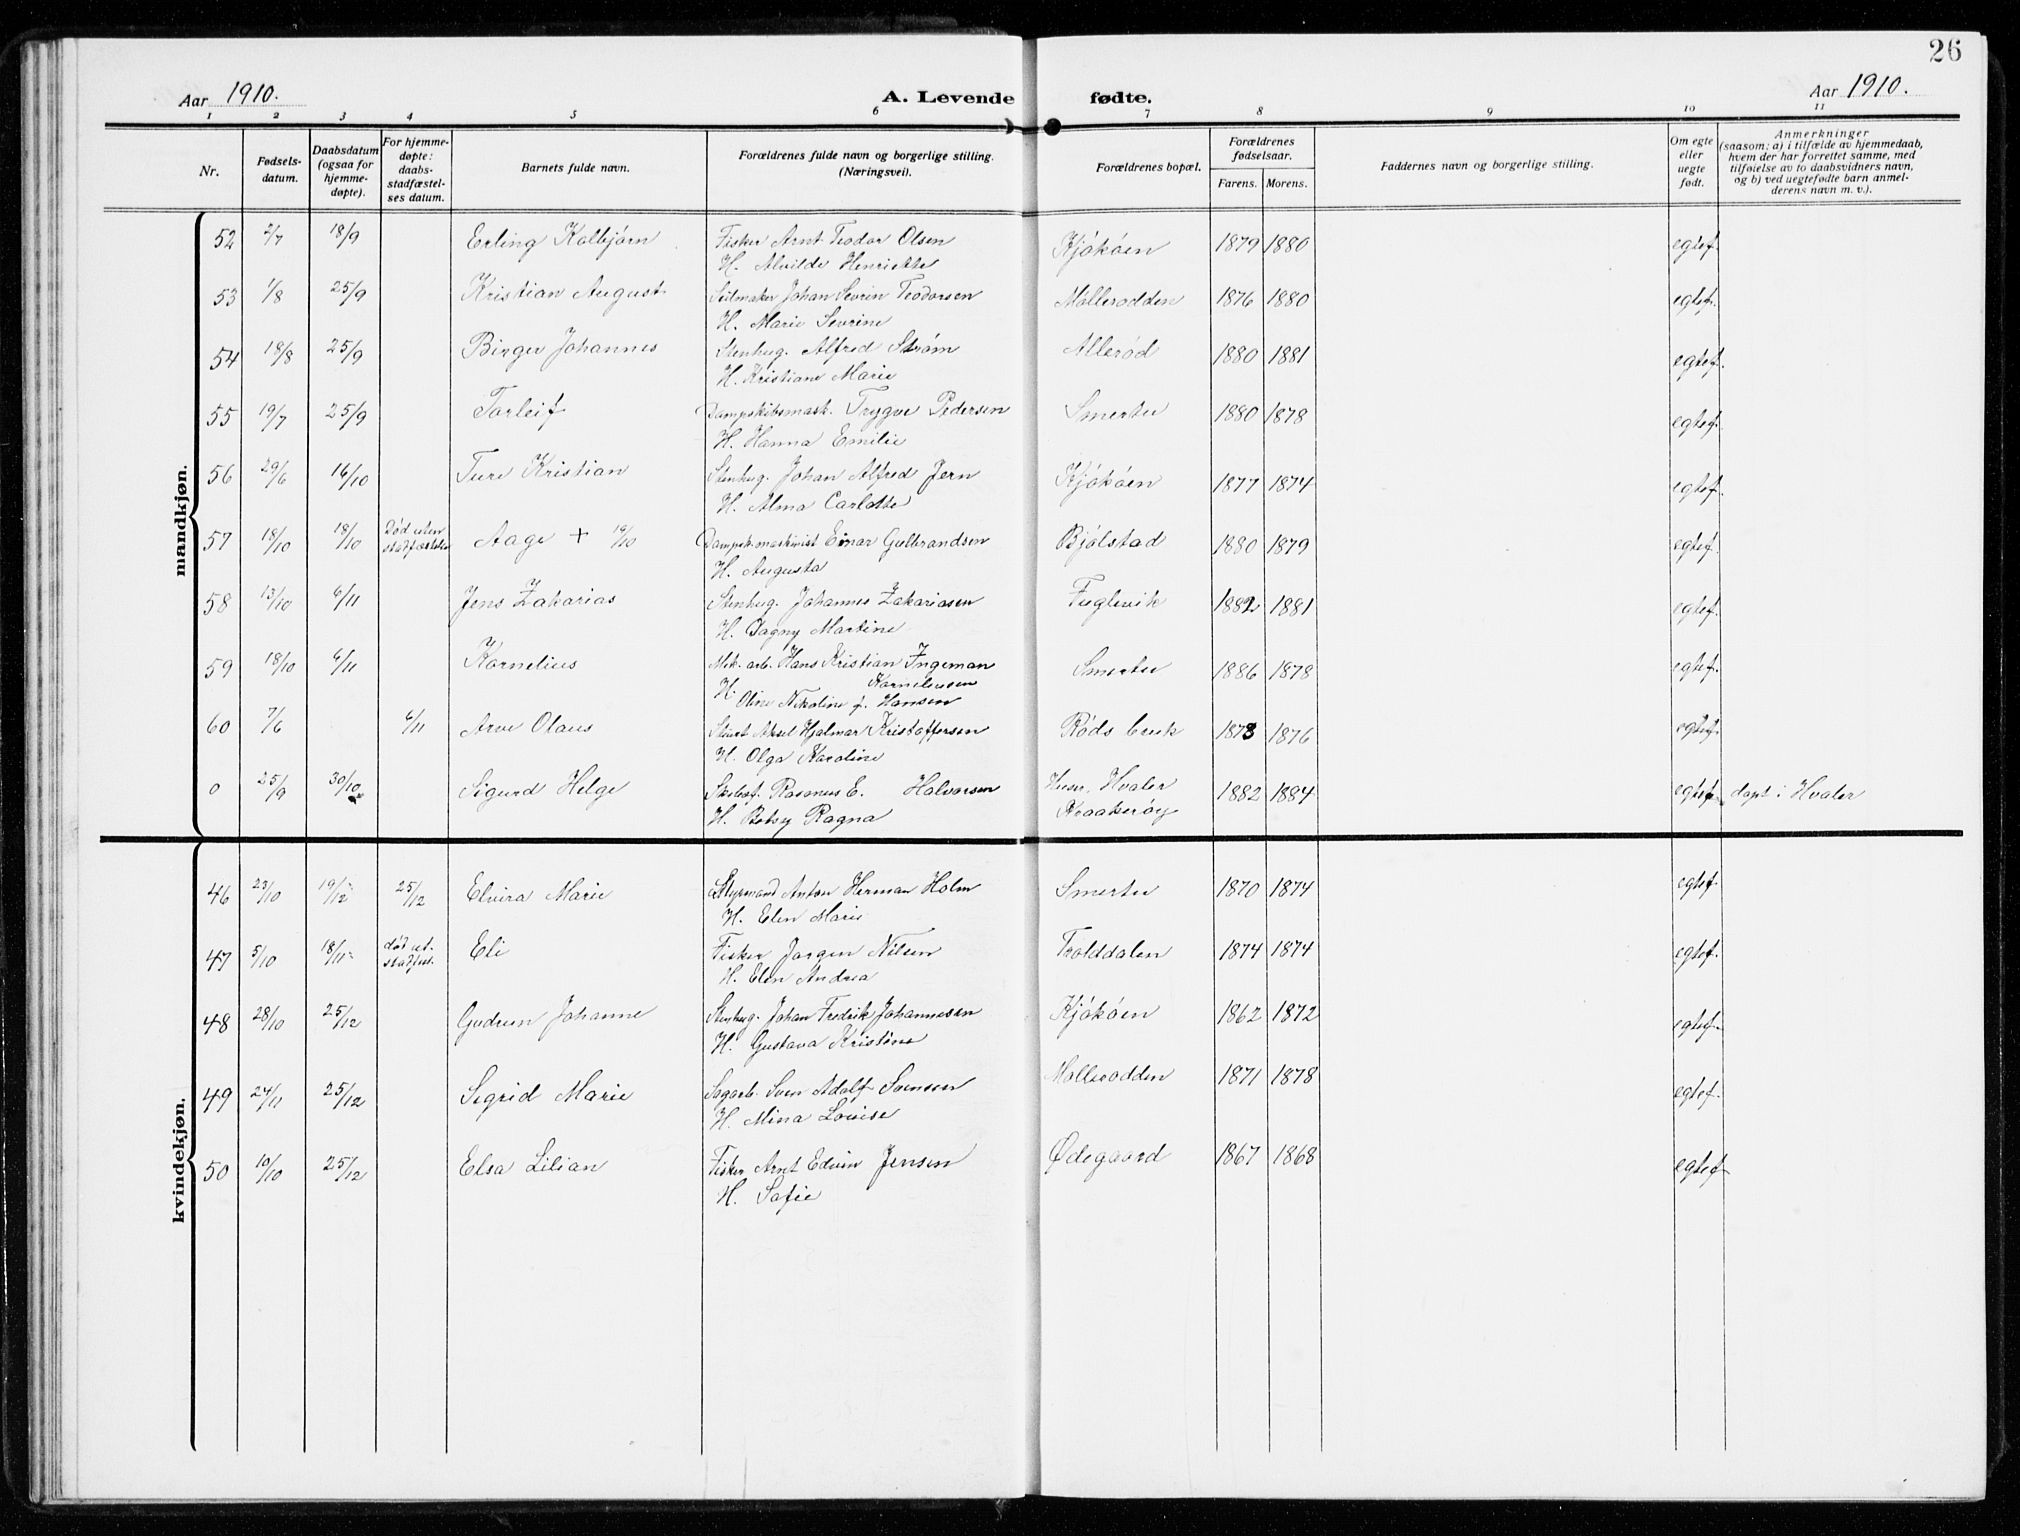 26
Aar 1910. A. Levende fødte. Aar 1910.
1 2 3 4 5 6 7 8 9 10 11
Nr.
Fødsels-
datum.
Daabsdatum
(ogsaa for
hjemme-
døpte).
For hjemme-
døpte:
daabs-
stadfæstel-
ses datum.
Barnets fulde navn.
Forældrenes fulde navn og borgerlige stilling.
(Næringsvei).
Forældrenes bopæl.
Forældrenes
fødselsaar.
Farens. Morens.
Faddernes navn og borgerlige stilling.
Om egte
eller
uegte
født.
Anmerkninger
(saasom: a) i tilfælde av hjemmedaab,
hvem der har forrettet samme, med
tilføielse av to daabsvidners navn,
og b) ved uegtefødte barn anmel-
derens navn m. v.).
mandkjøn.
52 2/7 18/9 Erling Kolbjørn Fisker Arnt Teodor Olsen Kjøkøen 1879 1880 egtef.
H. Alvilde Henriette
53 1/8 25/9 Kristian August Seilmaker Johan Sevrin Teodorsen Møllerodden 1876 1880 egtef.
H. Marie Sevrine
54 18/8 25/9 Birger Johannes Stenhug. Alfred Strøm Allerød 1880 1881 egtef.
H. Kristiane Marie
55 19/7 25/9 Torleif Dampskibsmask. Trygve Pedersen Smertu 1880 1878 egtef.
H. Hanna Emilie
56 29/6 16/10 Ture Kristian Stenhug. Johan Alfred Jern Kjøkøen 1877 1874 egtef.
H. Alma Carlotte
57 18/10 18/10 Død uten stadfæstelse Aage + 19/10 Dampsk.maskinist Einar Gulbrandsen Bjølstad 1880 1879 egtef.
H. Augusta
58 13/10 6/11 Jens Zakarias Stenhug. Johannes Zakariasen Fuglevik 1882 1881 egtef.
H. Dagny Martine
59 18/10 6/11 Kornelius Mek. arb. Hans Kristian Ingeman Smertu 1886 1878 egtef.
Korneliussen
H. Oline Nikoline f. Hansen
60 7/6 6/11 Arve Olaus Aksel Hjalmar Kristoffersen Røds bruk 1873 1876 egtef.
H. Olga Karoline
0 25/9 30/10 Sigurd Helge Rasmus E. Halvorsen Hvaler 1882 1884 egtef. døpt i Hvaler
H. Betsy Ragna Kraakerøy
kvindekjøn.
46 23/10 19/12 25/12 Elvira Marie Styrmand Anton Herman Holm Smertu 1870 1874 egtef.
H. Elen Marie
47 5/10 18/11 død ut. stadfest. Eli Fisker Jørgen Nilsen Trolddalen 1874 1874 egtef.
H. Elen Andrea
48 28/10 25/12 Gudrun Johanne Stenhug. Johan Fredrik Johannesen Kjøkøen 1862 1872 egtef.
H. Gustava Kristine
49 24/11 25/12 Sigrid Marie Sagarb. Sven Adolf Svensen Møllerodden 1871 1878 egtef.
H. Mina Lovise
50 10/10 25/12 Elsa Lilian Fisker Arnt Edvin Jensen Ødegaard 1867 1868 egtef.
H. Sofie